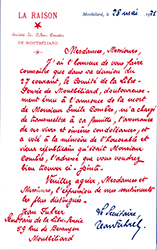 LA RAISON
Société des Libres-Penseurs
DE MONTBÉLIARD
Montbéliard, le 28 mai 1921
Mesdames, Messieurs,
J'ai l'honneur de vous faire
connaître que dans sa réunion du
27 courant, le Comité de la Libre-
Pensée de Montbéliard, douloureuse-
ment ému à l'annonce de la mort
de Monsieur Emile Combes, m'a chargé
de transmettre à sa famille, l'assurance
de ses vives et sincères condoléances, et
a voté à la mémoire de l'honorable et
vieux républicain qu'était Monsieur
Combes, l'adresse que vous voudrez
bien trouver ci-joint.
Veuillez agréer, Mesdames et
Messieurs, l'expression de mes sentiments
les plus distingués.
Jean Fabrer
Le Secrétaire,
de la Libre-Pensée
59 Rue de Besançon
Jean Fabrer
Montbéliard